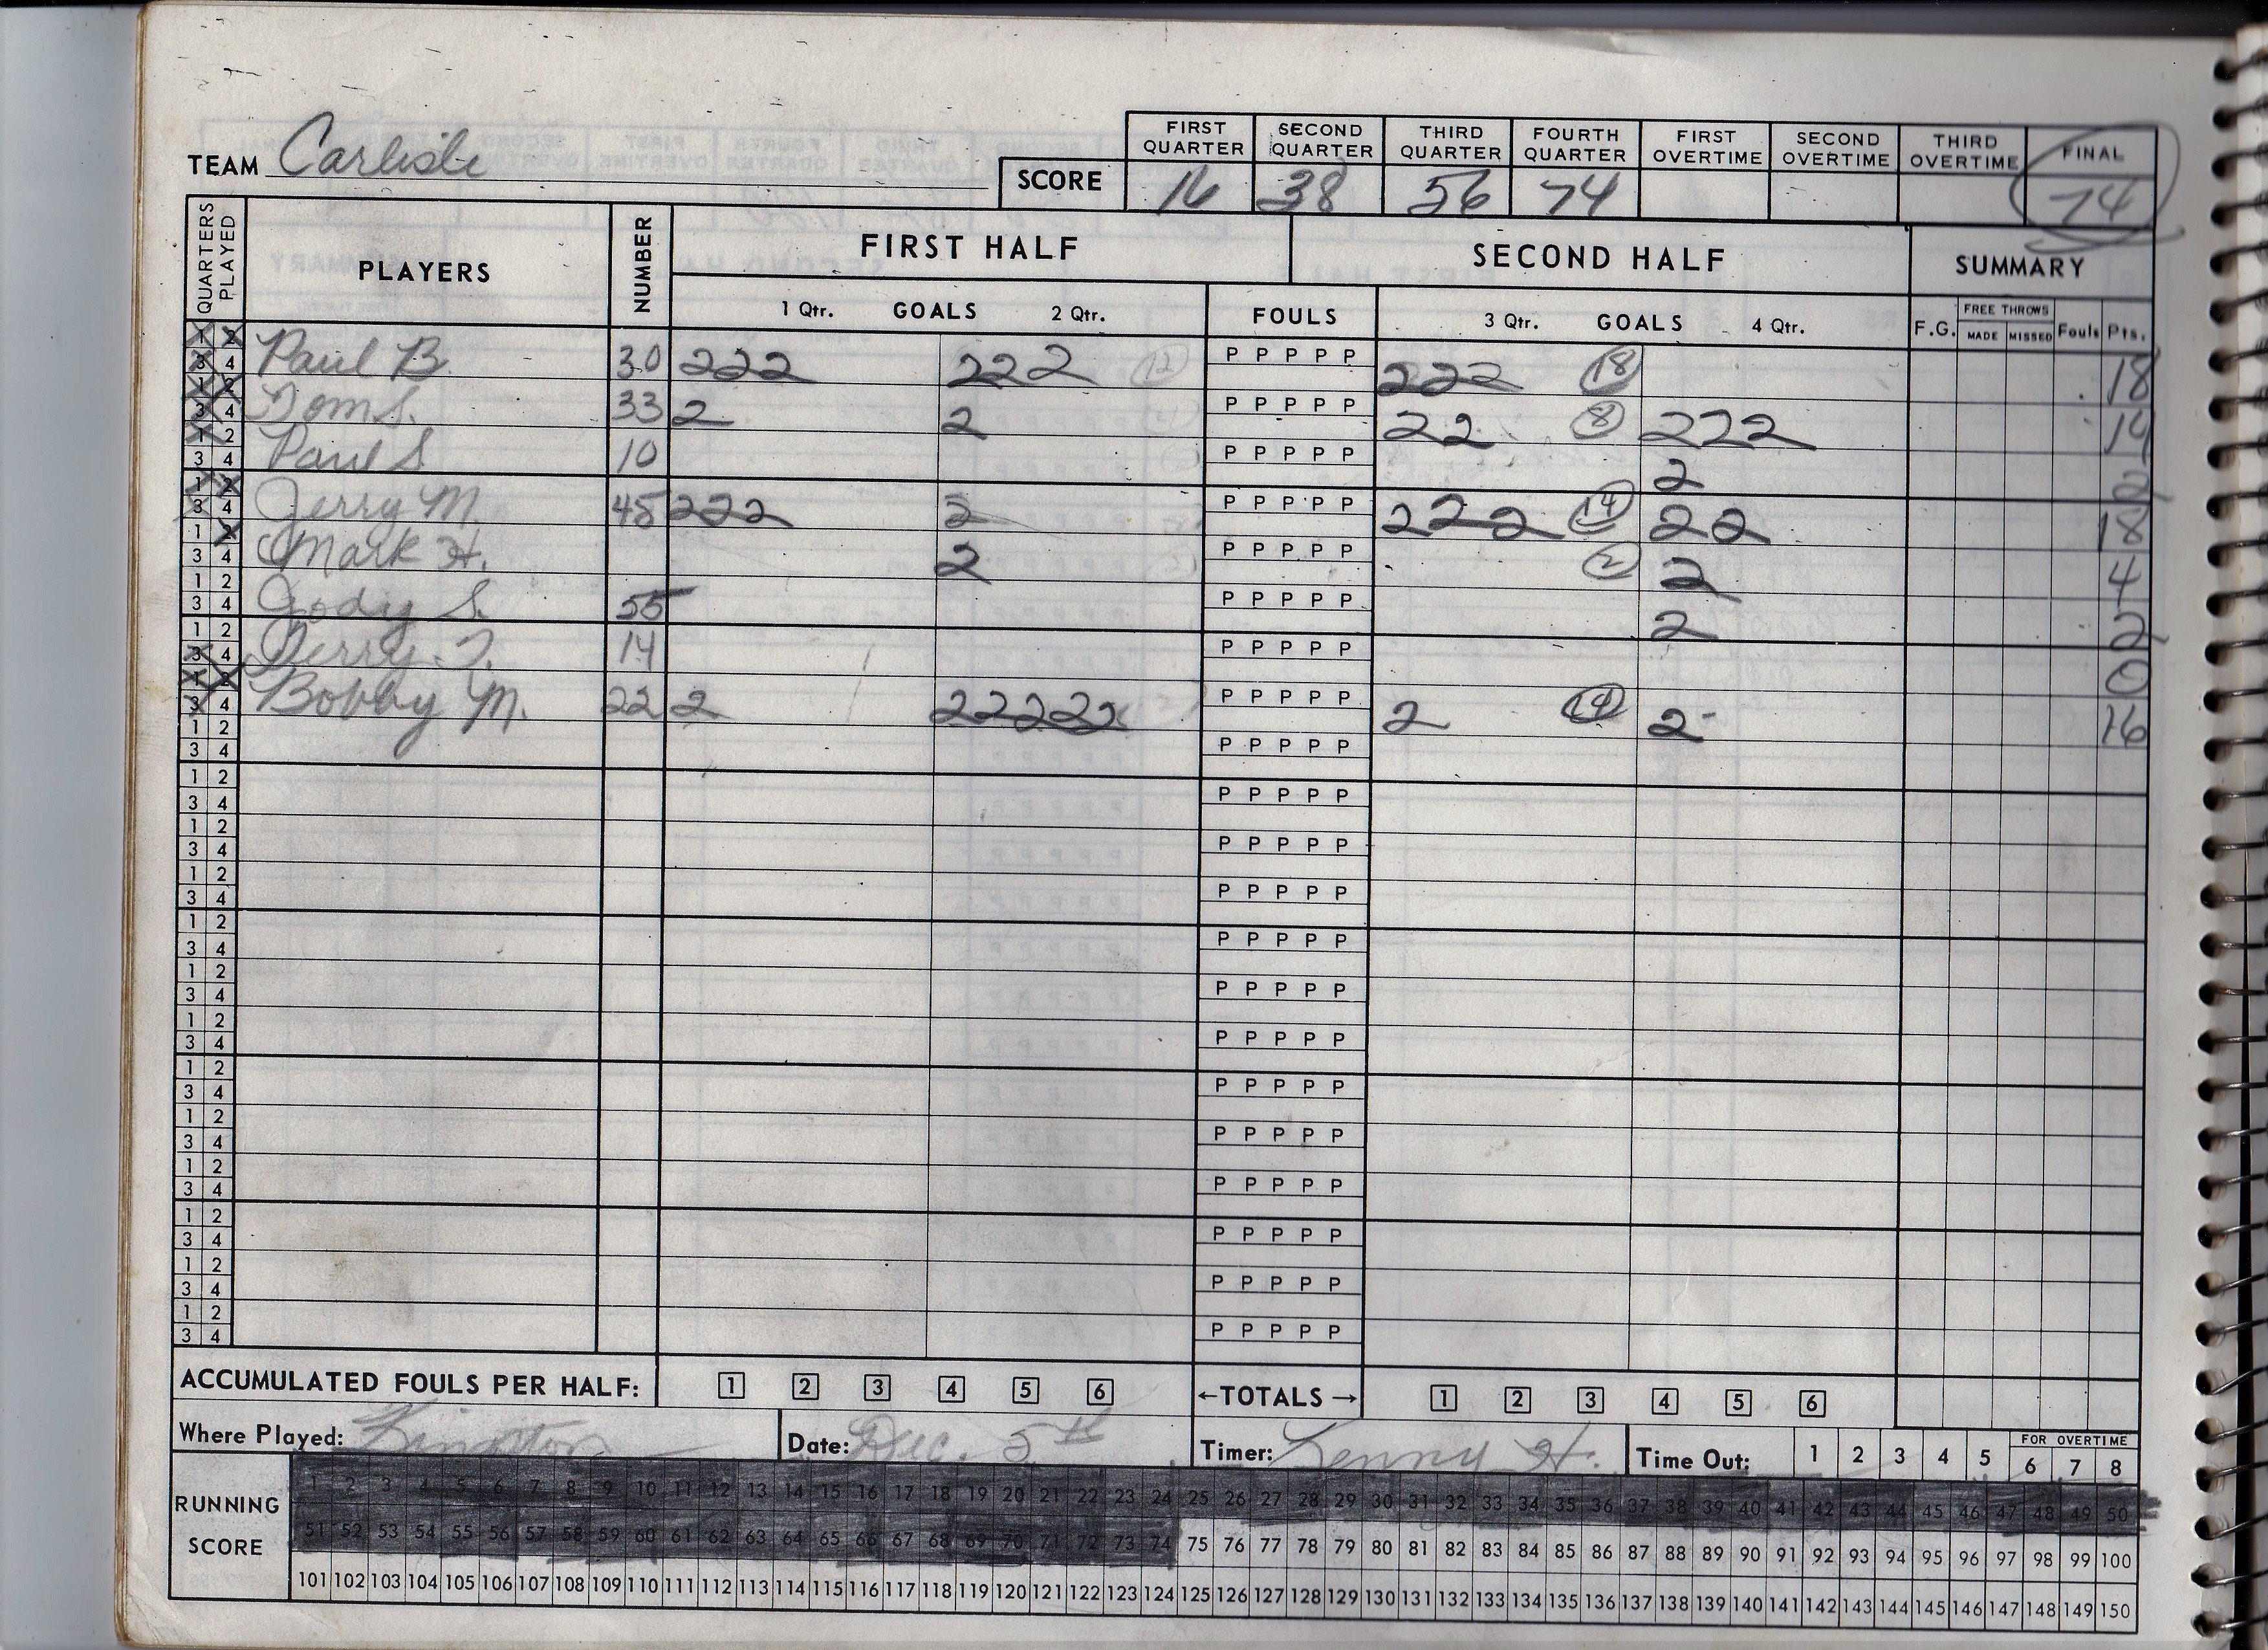 FIRST QUARTER SECOND QUARTER THIRD QUARTER FOURTH QUARTER FIRST OVERTIME SECOND OVERTIME THIRD OVERTIME FINAL
TEAM Carlisle SCORE 16 38 56 74 74
QUARTERS PLAYED PLAYERS NUMBER FIRST HALF SECOND HALF SUMMARY
1 Qtr. GOALS 2 Qtr. FOULS 3 Qtr. GOALS 4 Qtr. F.G. FREE THROWS MADE MISSED Fouls Pts.
1 2 3 4 Paul B. 30 222 222 12 P P P P P 222 18 18
1 2 3 4 Tom S. 33 2 2 P P P P P 22 8 222 14
1 2 3 4 Paul S 10 P P P P P 2 2
1 2 3 4 Jerry M. 45 222 2 P P P P P 222 14 22 18
1 2 3 4 Mark H. 2 P P P P P 2 2 4
1 2 3 4 Jody S. 55 P P P P P 2 2
1 2 3 4 14 P P P P P 0
1 2 3 4 Bobby M. 22 2 22222 P P P P P 2 14 2 16
1 2 3 4 P P P P P
1 2 3 4 P P P P P
1 2 3 4 P P P P P
1 2 3 4 P P P P P
1 2 3 4 P P P P P
1 2 3 4 P P P P P
1 2 3 4 P P P P P
1 2 3 4 P P P P P
1 2 3 4 P P P P P
1 2 3 4 P P P P P
1 2 3 4 P P P P P
1 2 3 4 P P P P P
1 2 3 4 P P P P P
ACCUMULATED FOULS PER HALF: 1 2 3 4 5 6 ←TOTALS→ 1 2 3 4 5 6
Where Played: Kingston Date: Dec. 5th Timer: Kenny H. Time Out: 1 2 3 4 5 FOR OVERTIME 6 7 8
RUNNING SCORE
1 2 3 4 5 6 7 8 9 10 11 12 13 14 15 16 17 18 19 20 21 22 23 24 25 26 27 28 29 30 31 32 33 34 35 36 37 38 39 40 41 42 43 44 45 46 47 48 49 50
51 52 53 54 55 56 57 58 59 60 61 62 63 64 65 66 67 68 69 70 71 72 73 74 75 76 77 78 79 80 81 82 83 84 85 86 87 88 89 90 91 92 93 94 95 96 97 98 99 100
101 102 103 104 105 106 107 108 109 110 111 112 113 114 115 116 117 118 119 120 121 122 123 124 125 126 127 128 129 130 131 132 133 134 135 136 137 138 139 140 141 142 143 144 145 146 147 148 149 150